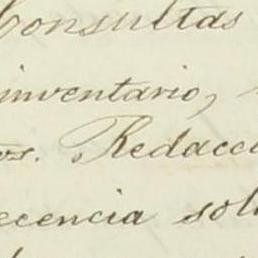 Consultas
inventario,
os. Redacci
ecencia sol